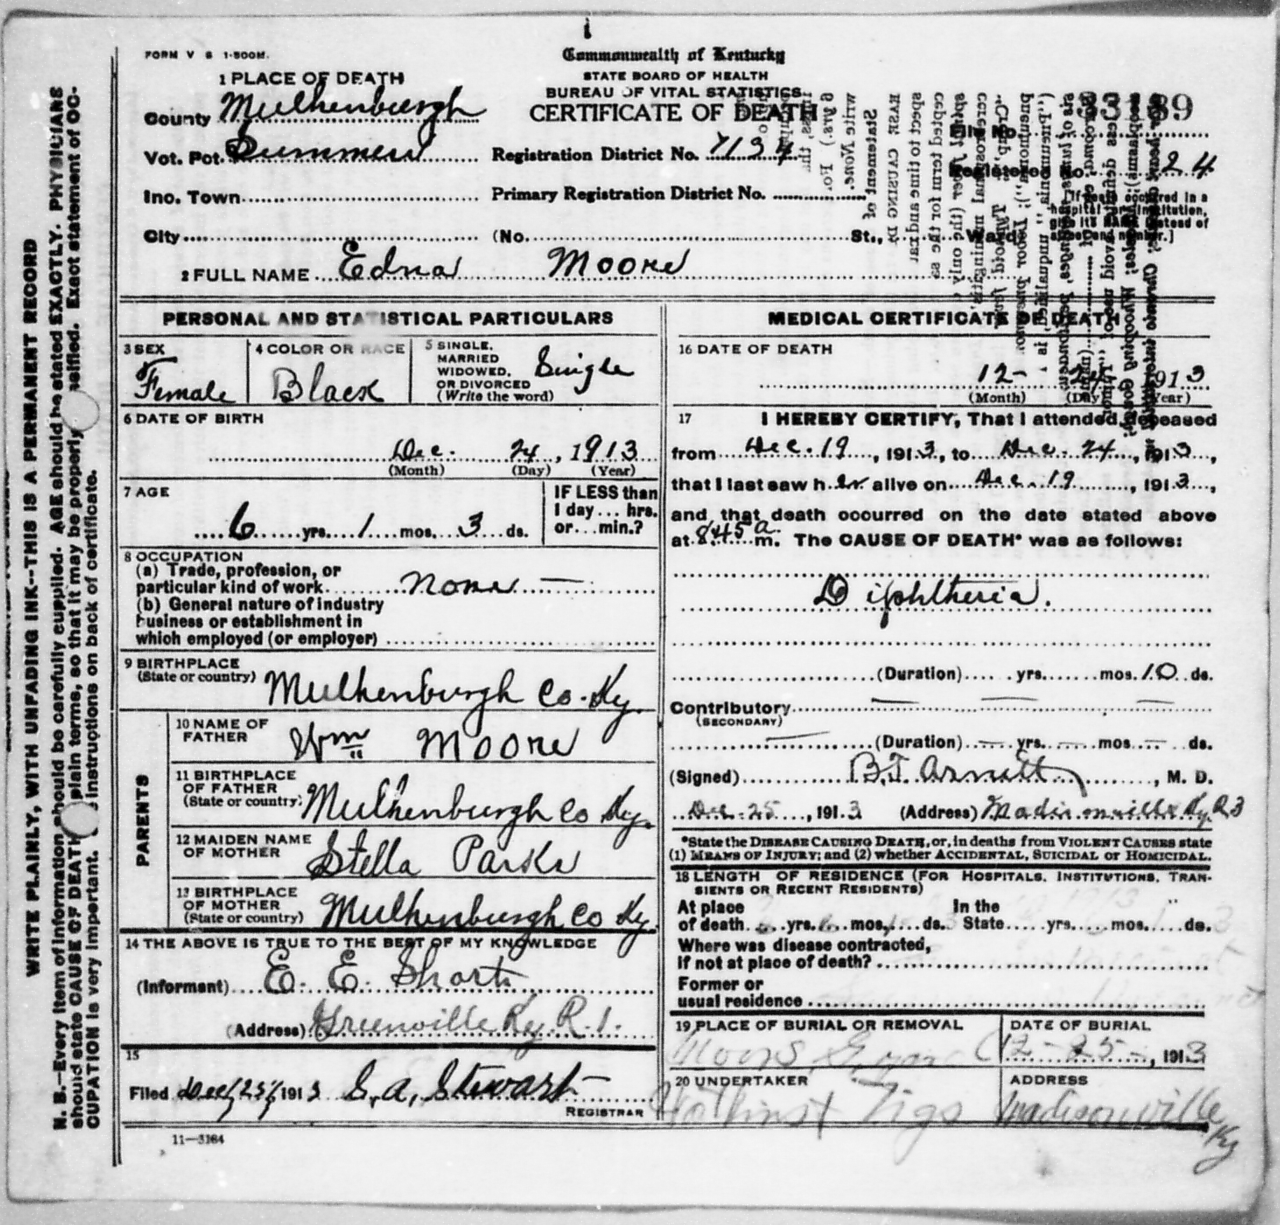 FORM V S 1-500M.
Commonwealth of Kentucky
STATE BOARD OF HEALTH
BUREAU OF VITAL STATISTICS
CERTIFICATE OF DEATH
1 PLACE OF DEATH
County Muhlenburgh
Vot. Pct. Summers Registration District No. 7134
Registered No. 24
Inc. Town Primary Registration District No.
City (No. St., Ward)
2 FULL NAME Edna Moore
PERSONAL AND STATISTICAL PARTICULARS
3 SEX Female
4 COLOR OR RACE Black
5 SINGLE, MARRIED WIDOWED, OR DIVORCED (Write the word) Single
6 DATE OF BIRTH
Dec. 24, 1913
(Month) (Day) (Year)
7 AGE
6 yrs. 1 mos. 3 ds.
IF LESS than
1 day ... hrs.
or ... min.?
8 OCCUPATION
(a) Trade, profession, or
particular kind of work None —
(b) General nature of industry
business or establishment in
which employed (or employer)
9 BIRTHPLACE
(State or country) Muhlenburgh Co. Ky.
PARENTS
10 NAME OF FATHER Wm Moore
11 BIRTHPLACE OF FATHER (State or country) Muhlenburgh Co Ky.
12 MAIDEN NAME OF MOTHER Stella Parks
13 BIRTHPLACE OF MOTHER (State or country) Muhlenburgh Co Ky.
14 THE ABOVE IS TRUE TO THE BEST OF MY KNOWLEDGE
(Informant) E. E. Shorts
(Address) Greenville Ky R. 1.
15
Filed Dec 25, 1913 S. A. Stewart
REGISTRAR
11—3184
MEDICAL CERTIFICATE OF DEATH
16 DATE OF DEATH
12- 24 1913
(Month) (Day) (Year)
17 I HEREBY CERTIFY, That I attended deceased
from Dec. 19, 1913, to Dec. 24, 1913,
that I last saw her alive on Dec. 19, 1913,
and that death occurred on the date stated above
at 8 45 a m. The CAUSE OF DEATH* was as follows:
Diphtheria.
(Duration) yrs. mos. 10 ds.
Contributory
(SECONDARY)
(Duration) — yrs. — mos. — ds.
(Signed) B.T. Arnett, M. D.
Dec. 25, 1913 (Address) Madisonville Ky. R3
*State the DISEASE CAUSING DEATH, or, in deaths from VIOLENT CAUSES state
(1) MEANS OF INJURY; and (2) whether ACCIDENTAL, SUICIDAL or HOMICIDAL.
18 LENGTH OF RESIDENCE (FOR HOSPITALS, INSTITUTIONS, TRAN-
SIENTS OR RECENT RESIDENTS)
At place In the
of death yrs. mos. ds. State yrs. mos. ds.
Where was disease contracted,
If not at place of death?
Former or
usual residence
19 PLACE OF BURIAL OR REMOVAL DATE OF BURIAL
12-25-, 1913
20 UNDERTAKER ADDRESS
Madisonville Ky
WRITE PLAINLY, WITH UNFADING INK--THIS IS A PERMANENT RECORD
N. B.—Every item of information should be carefully supplied. AGE should be stated EXACTLY. PHYSICIANS
should state CAUSE OF DEATH in plain terms, so that it may be properly classified. Exact statement of OC-
CUPATION is very important. instructions on back of certificate.